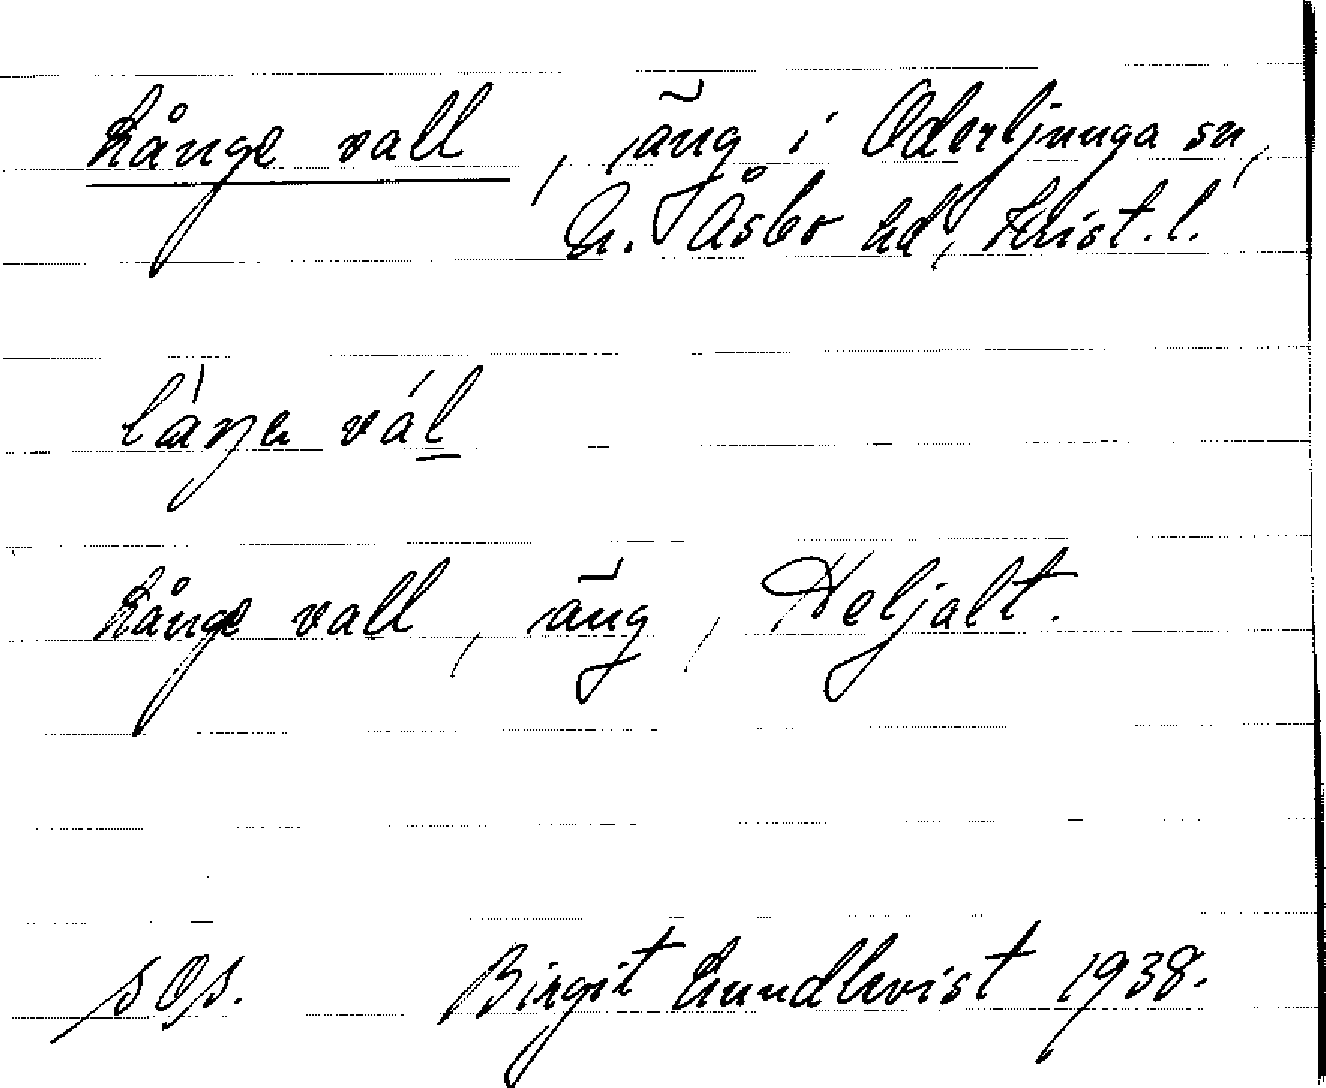 Långe vall, äng i Oderljunga sn,
N. Åsbo hd, Krist. l.
vál
Långe vall, äng, Heljalt.
Birgit Lundkvist 1938.